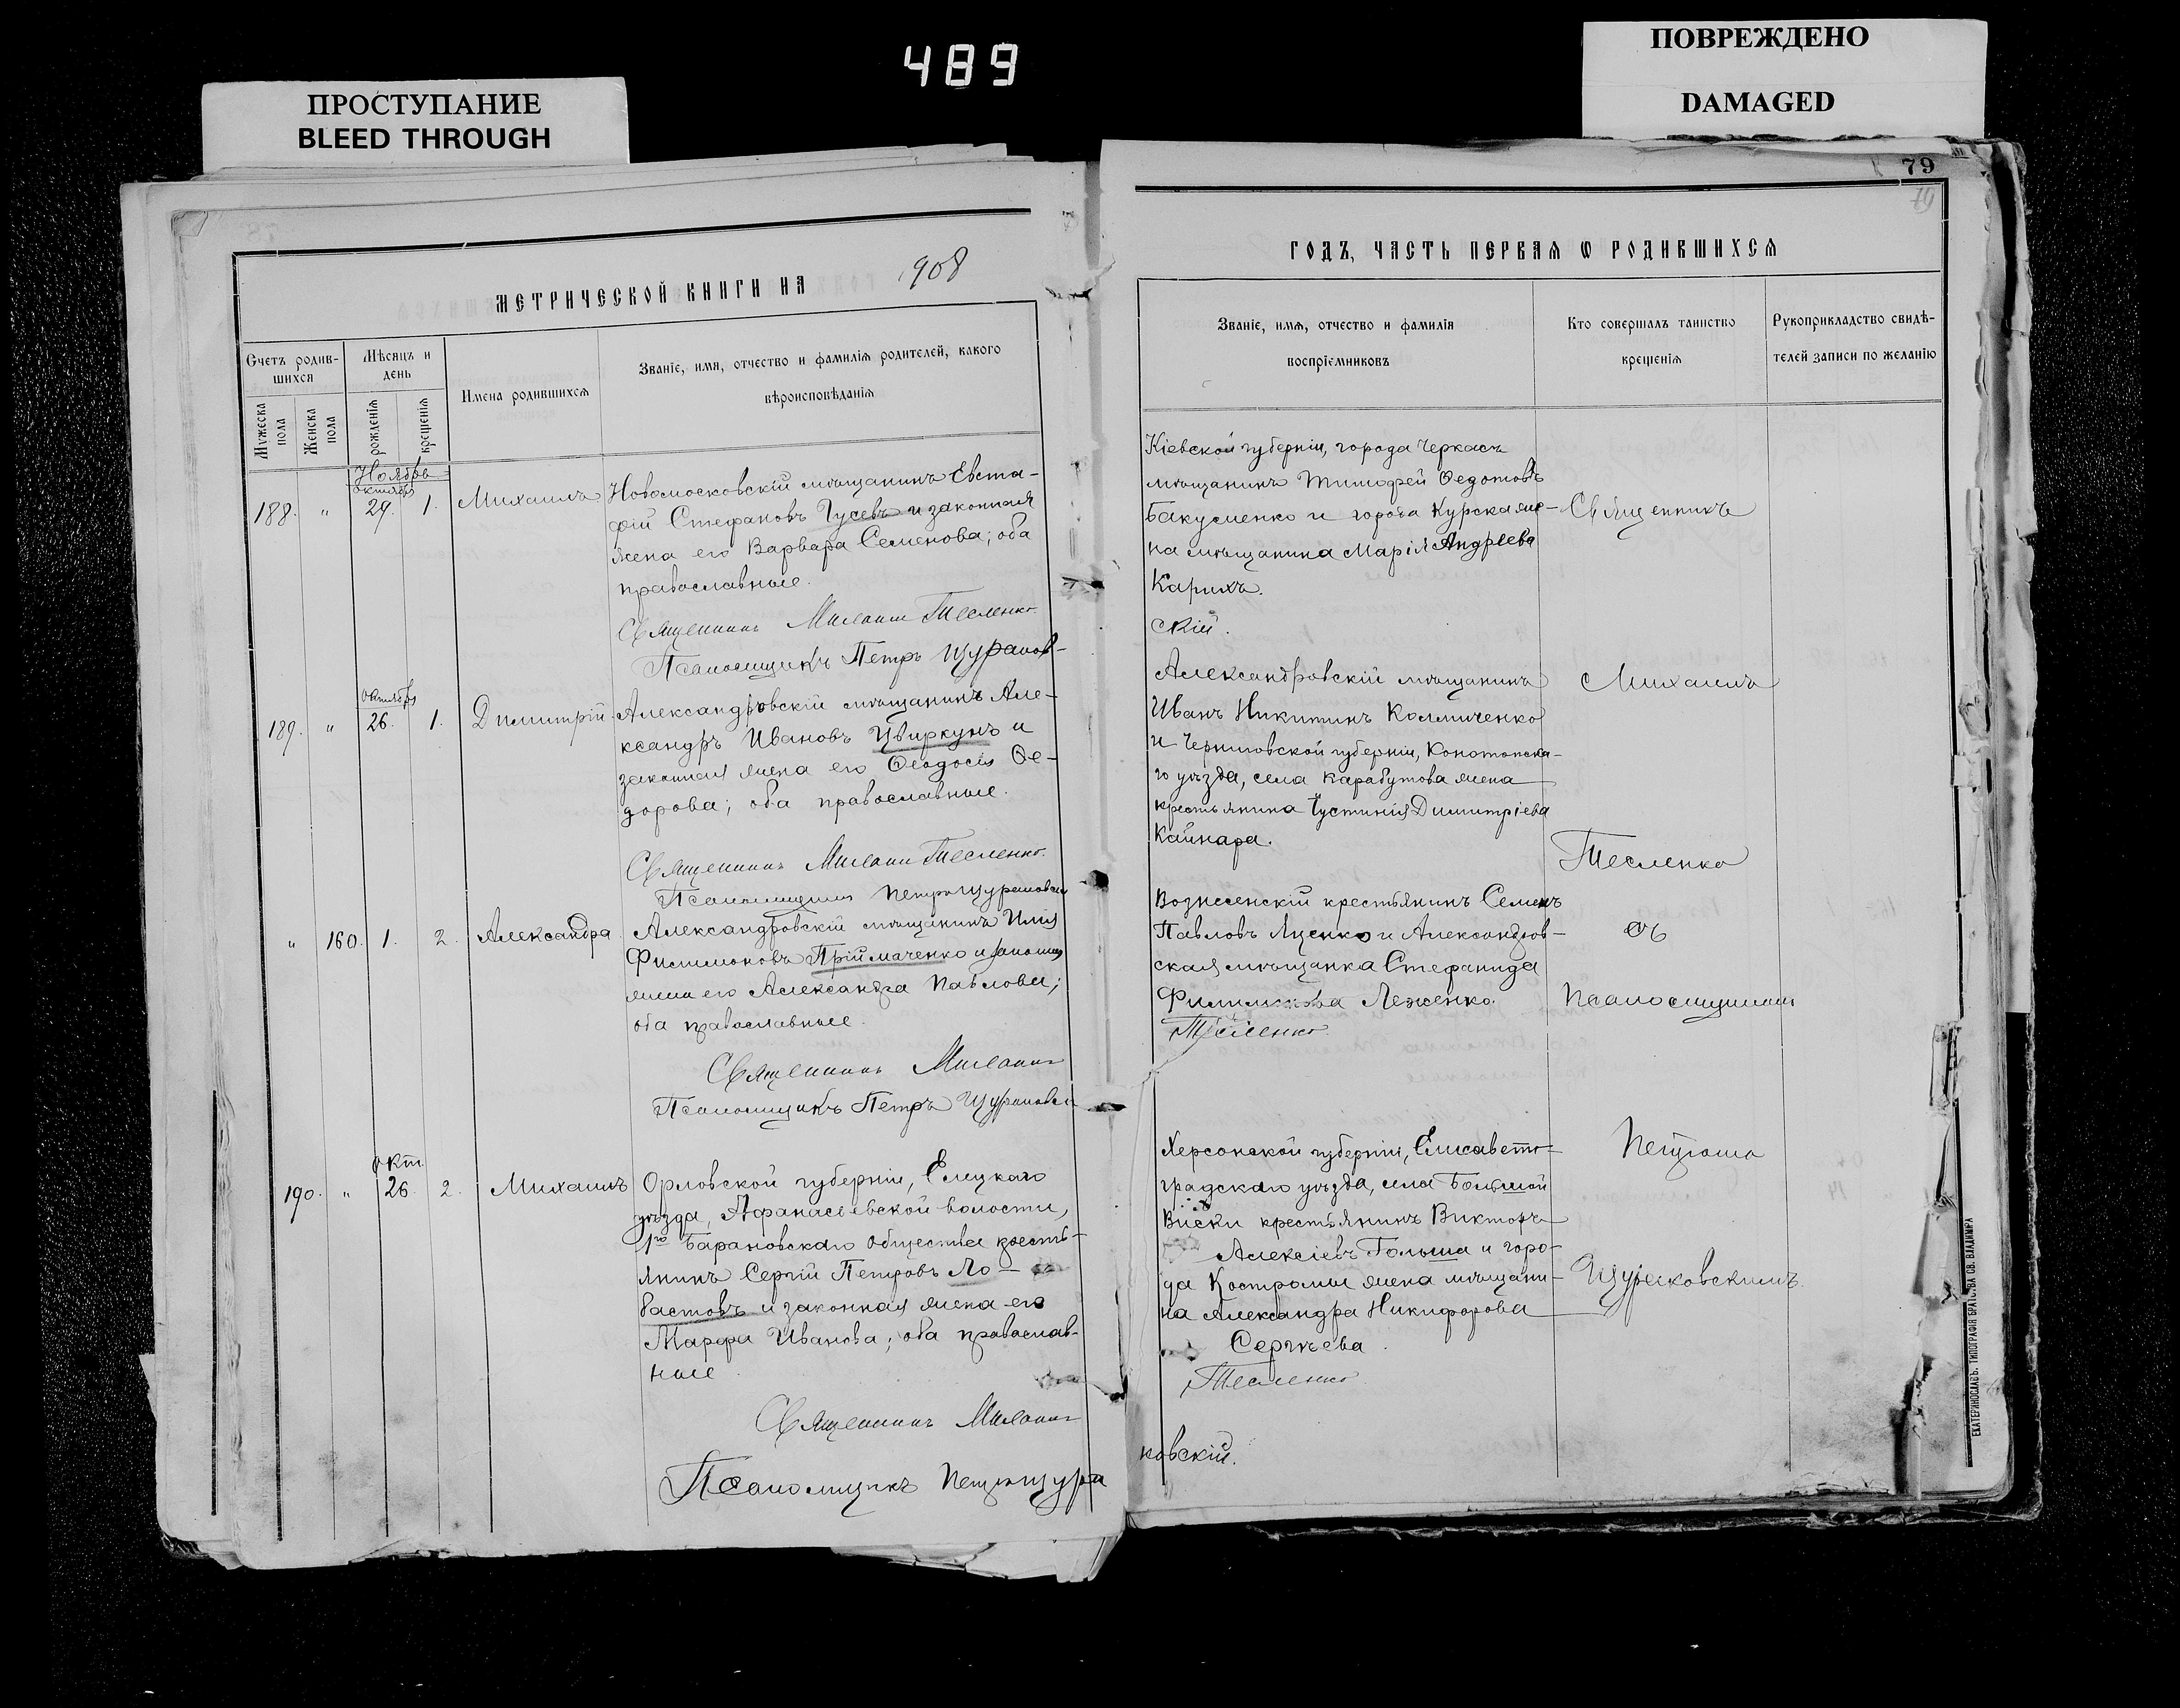 489
ПРОСТУПАНИЕ
BLEED THROUGH
ПОВРЕЖДЕНО
DAMAGED
МЕТРИЧЕСКОЙ КНИГИ НА 1908
Счетъ родив-
шихся
Мѣсяцъ и
день
Имена родившихся
Званіе, имя, отчество и фамилія родителей, какого
вѣроисповѣданія
Мужеска
пола
Женска
пола
рожденія
крещенія
Ноябрь
октября
188. " 29. 1. Михаилъ
Новомосковскій мѣщанинъ Евста-
фій Стефановъ Гусевъ и законная
жена его Варвара Семенова; оба
православные.
Священникъ Михаилъ Тесленко.
Псаломщикъ Петръ Щуранов-
октября
189. " 26. 1. Димитрій
Александровскій мѣщанинъ Але-
ксандръ Ивановъ Цвиркунъ и
законная жена его Ѳеодосія Ѳе-
дорова; оба православные.
Священникъ Михаилъ Тесленко.
Псаломщикъ Петръ
" 160. 1. 2. Александра
Александровскій мѣщанинъ Илія
Филимоновъ Пріймаченко и законная
жена его Александра Павлова;
оба православные.
Священникъ Михаилъ
Псаломщикъ Петръ
окт.
190. " 26. 2. Михаилъ
Орловской губерніи, Елецкаго
уѣзда, Афанасьевской волости,
1го Барановскаго общества кресть-
янинъ Сергій Петровъ Ло-
бастовъ и законная жена его
Марфа Иванова; оба православ-
ные.
Священникъ Михаилъ
Псаломщикъ Петръ Щура
79
ГОДЪ, ЧАСТЬ ПЕРВАЯ Ѡ РОДИВШИХСЯ
Званіе, имя, отчество и фамилія
воспріемниковъ
Кто совершалъ таинство
крещенія
Рукоприкладство свидѣ-
телей записи по желанію
Кіевской губерніи, города Черкасъ
мѣщанинъ Тимофей Ѳедотовъ
Бакуменко и города Курска же-
на мѣщанина Марія Андреева
Карихъ.
скій.
Александровскій мѣщанинъ
Иванъ Никитинъ Колмиченко
и Черниговской губерніи, Конотопска-
го уѣзда, села Карабутова жена
крестьянина Іустинія Димитріева
Кайнара.
Вознесенскій крестьянинъ Семенъ
Павловъ Яценко и Александров-
ская мѣщанка Стефанида
Филимонова Леженко.
Тесленко
Херсонской губерніи, Елисавето-
градскаго уѣзда, села Большой
Виски крестьянинъ Викторъ
Алексіевъ Гольша и горо-
да Костромы жена мѣщани-
на Александра Никифорова
Сергѣева.
Тесленко
новскій.
Священникъ
Михаилъ
Тесленко
съ
псаломщикомъ
Петромъ
Щурановскимъ.
ЕКАТЕРИНОСЛАВЪ. ТИПОГРАФІЯ БРАТСТВА СВ. ВЛАДИМІРА